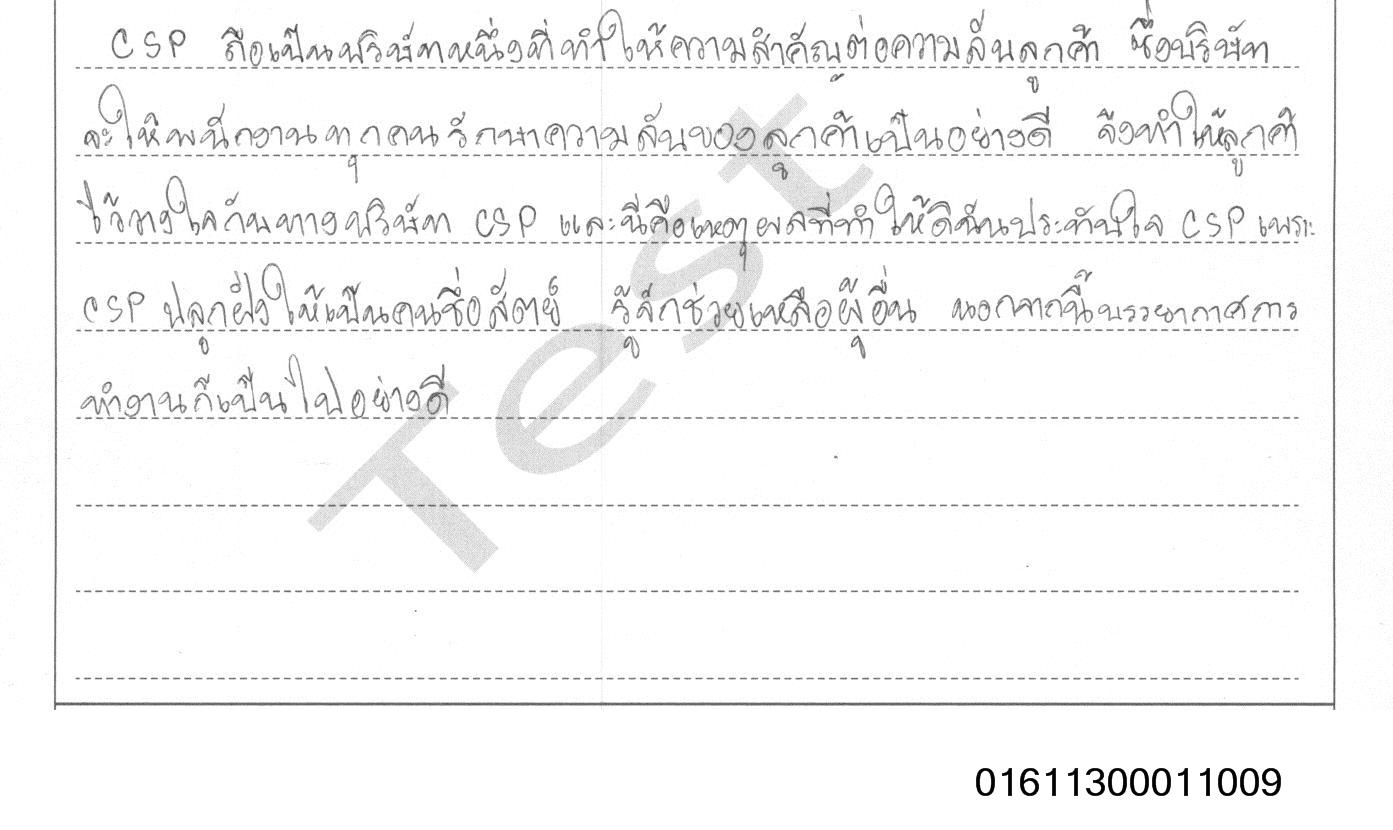 CSP ถือเป็นบริษัทหนึ่งที่ทำให้ความสำคัญต่อความลับลูกค้า ซึ่งบริษัท
จะให้พนักงานทุกคนรักษาความลับของลูกค้าเป็นอย่างดี จึงทำให้ลูกค้า
ไว้วางใจกับทางบริษัท CSP และนี่คือเหตุผลที่ทำให้ดิฉันประทับใจ CSP เพราะ
CSP ปลูกฝังให้เป็นคนซื่อสัตย์ รู้จักช่วยเหลือผู้อื่น นอกจากนี้บรรยากาศการ
ทำงานก็เป็นไปอย่างดี
Test
01611300011009